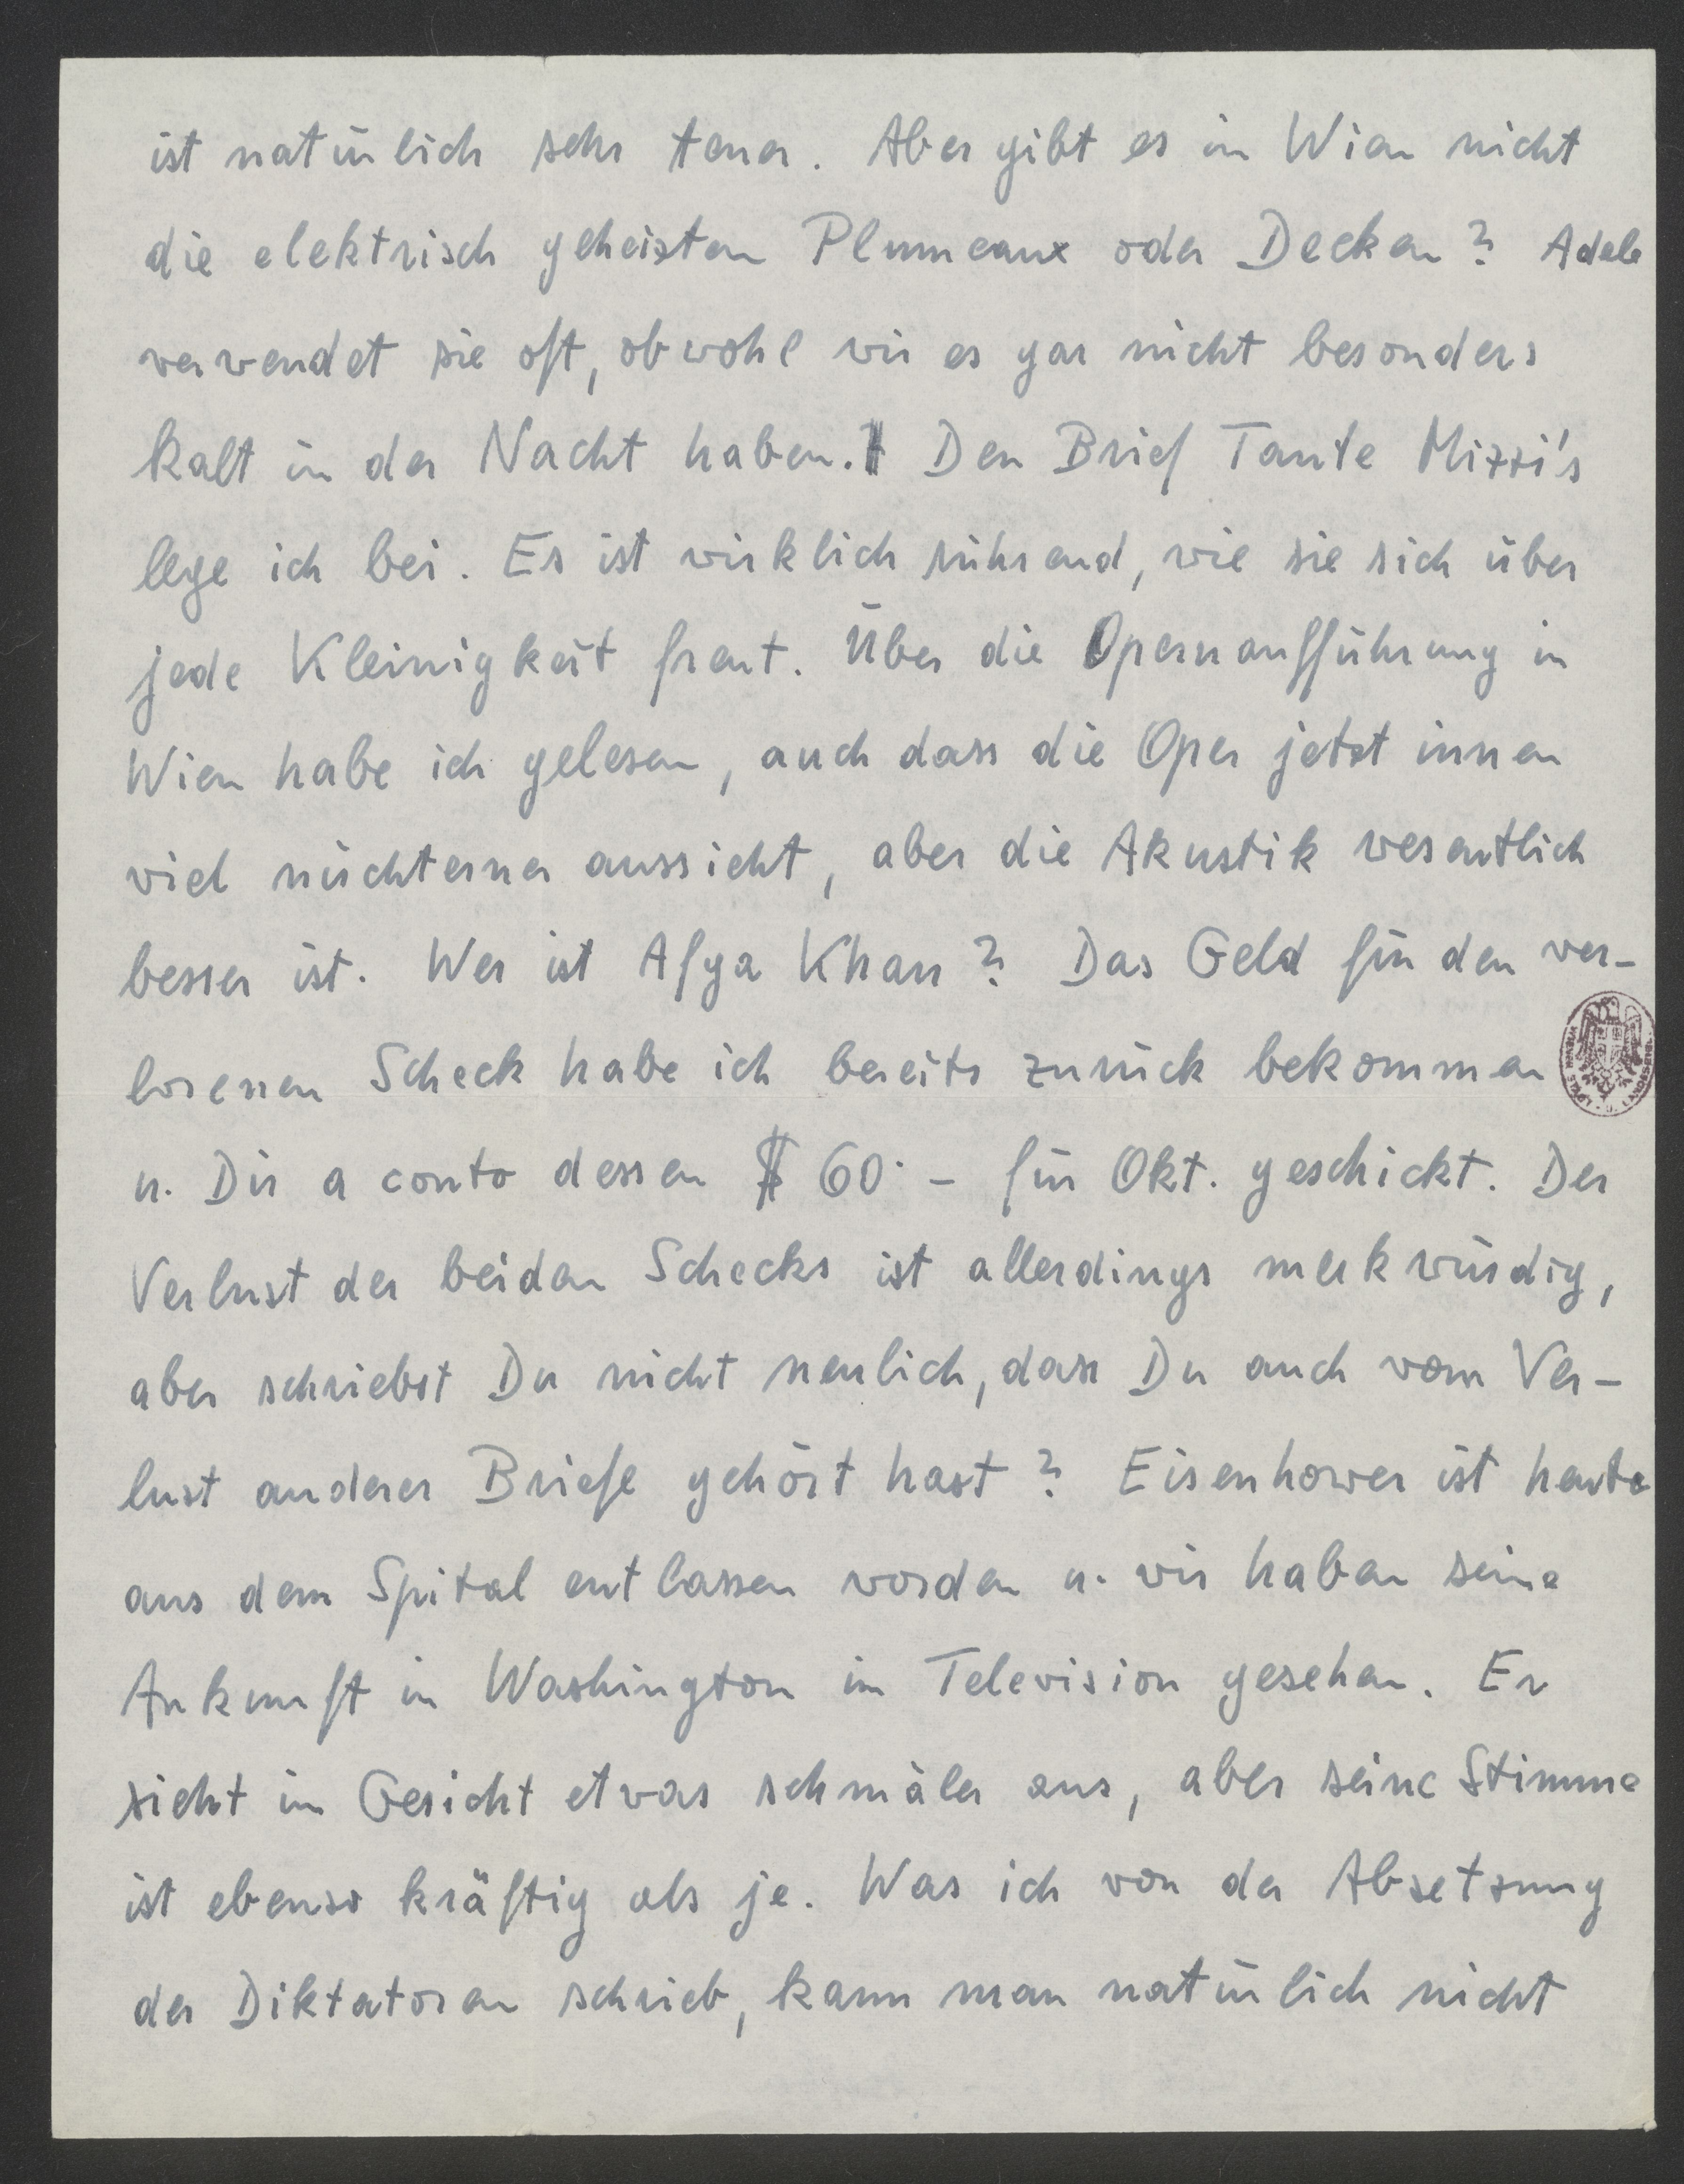 ist natürlich sehr teuer. Aber gibt es in Wien nicht
die elektrisch geheizten Plumeaux oder Decken? Adele
verwendet sie oft, obwohl wir es gar nicht besonders
kalt in der Nacht haben. Den Brief Tante Mizzi's
lege ich bei. Es ist wirklich rührend, wie sie sich über
jede Kleinigkeit freut. Über die Opernaufführung in
Wien habe ich gelesen, auch dass die Oper jetzt innen
viel nüchterner aussieht, aber die Akustik wesentlich
besser ist. Wer ist Afga Khan? Das Geld für den ver-
lorenen Scheck habe ich bereits zurück bekommen
u. Dir a conto dessen $ 60·– für Okt. geschickt. Der
Verlust der beiden Schecks ist allerdings merkwürdig,
aber schriebst Du nicht neulich, dass Du auch vom Ver-
lust anderer Briefe gehört hast? Eisenhower ist heute
aus dem Spital entlassen worden u. wir haben seine
Ankunft in Washington im Television gesehen. Er
sieht im Gesicht etwas schmäler aus, aber seine Stimme
ist ebenso kräftig als je. Was ich von der Absetzung
der Diktatoren schrieb, kann man natürlich nicht